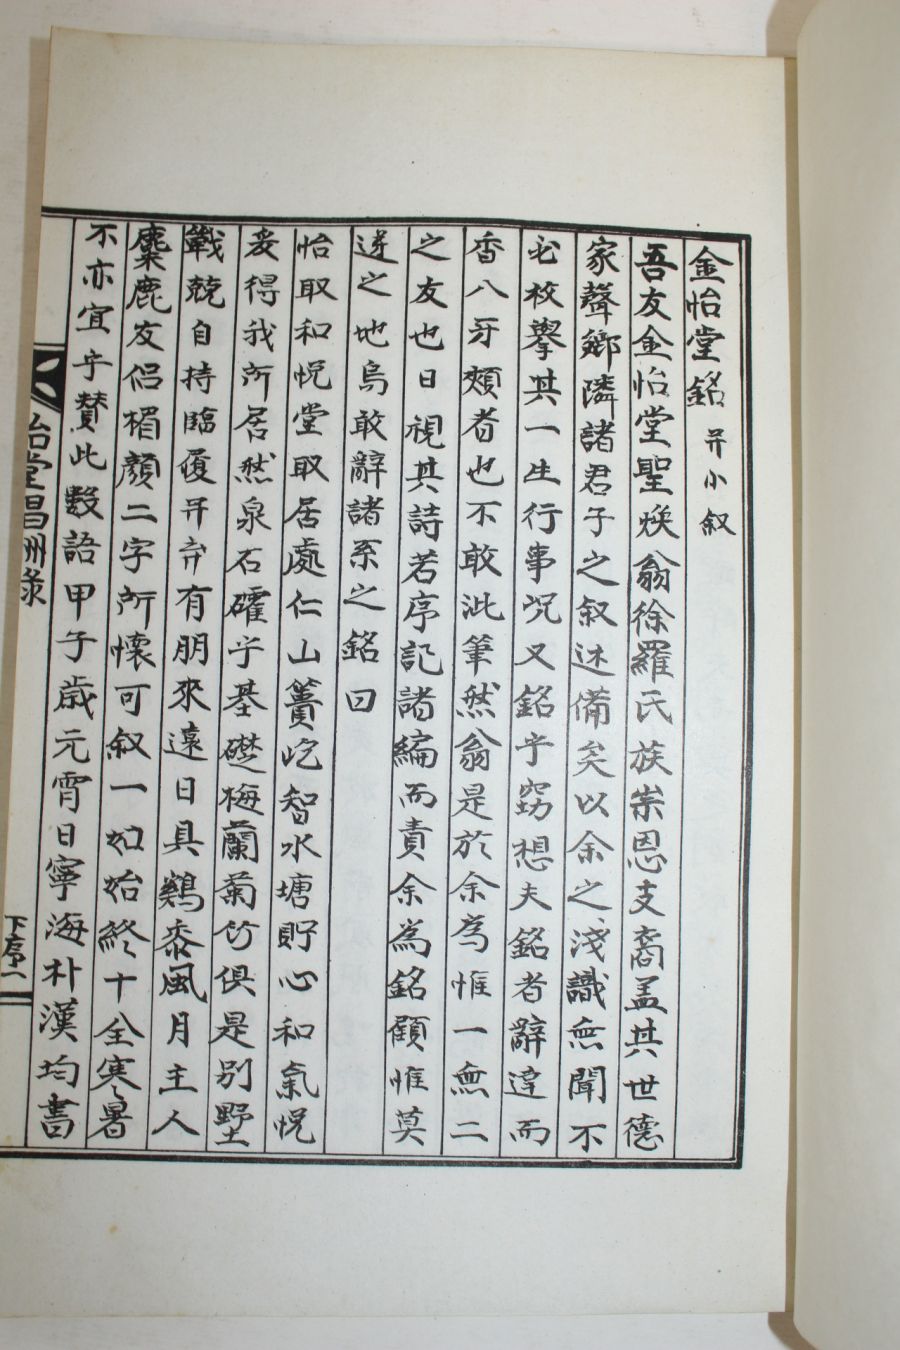 金怡堂銘 并小叙
吾友金怡堂聖煥翁徐羅氏族崇恩支裔盖其世德
家聲鄉隣諸君子之叙述備矣以余之淺識無聞不
必枚擧其一生行事况又銘乎窃想夫銘者辭達而
香八牙頰者也不敢泚筆然翁是於余爲惟一無二
之友也日視其詩若序記諸編而責余為銘顧惟莫
逆之地烏敢辭諸系之銘曰
怡取和悅堂取居處仁山簣屹智水塘貯心和氣悅
爰得我所居然泉石礭乎基礎梅蘭菊竹俱是別墅
戰兢自持臨履并弆有朋來遠日具鷄黍風月主人
麋鹿友侶楣顏二字所懷可叙一如始終十全寒暑
不亦宜乎賛此數語甲子歲元霄日寧海朴漢均書
怡堂唱酬錄
下序一